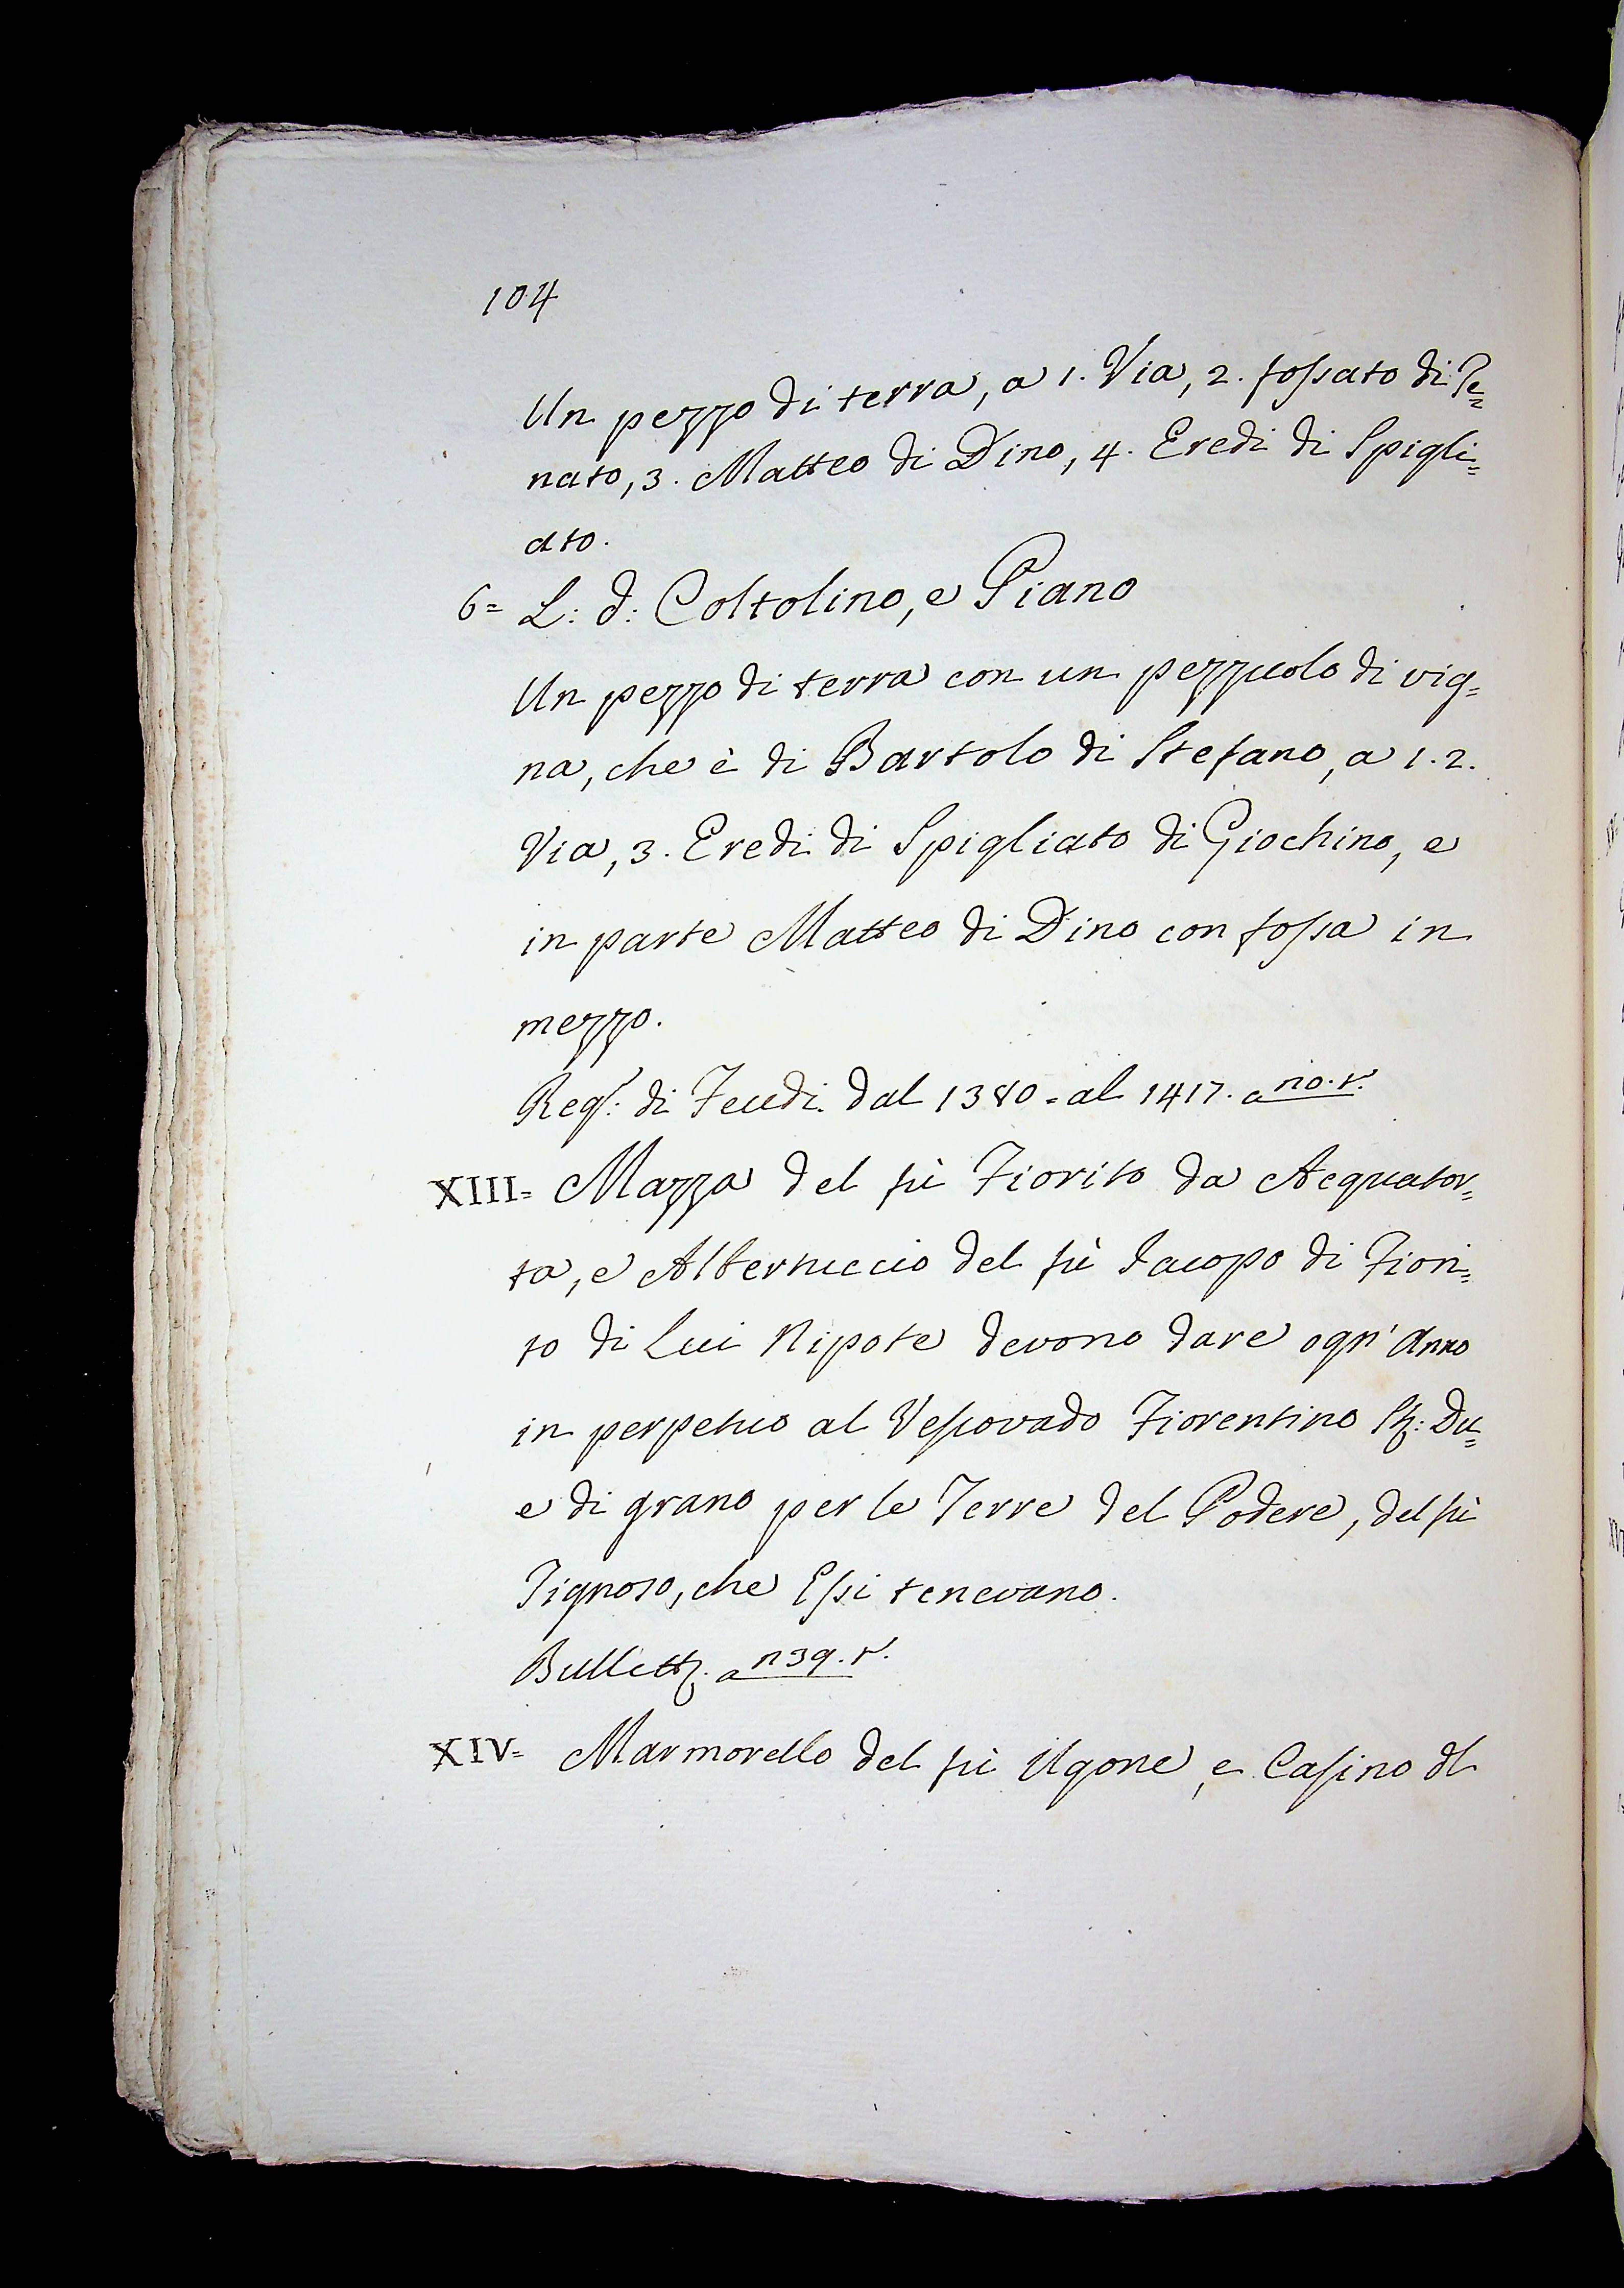 104
Un pezzo di terra, a 1. Via, 2. fossato di Pe=
nato, 3. Matteo di Dino, 4. Eredi di Spigli=
ato.
6= L: d: Coltolino, e Piano
Un pezzo di terra con un pezzuolo di vig=
na, che è di Bartolo di Stefano, a 1. 2.
Via, 3. Eredi di Spigliato di Giochino, e
in parte Matteo di Dino con fossa in
mezzo.
Reg.: di Feudi dal 1380. al 1417. a
XIII= Mazza del fù Fiorito da Acquator=
ta, e Albertuccio del fù Iacopo di Fiori=
to di Lui Nipote devono dare ogn' Anno
in perpetuo al Vescovado Fiorentino St: Du=
e di grano per le Terre del Podere, del fù
Tignoso, che Essi tenevano.
Bullett. a n39. r.
XIV= Marmorello del fù Ugone, e Casino dl